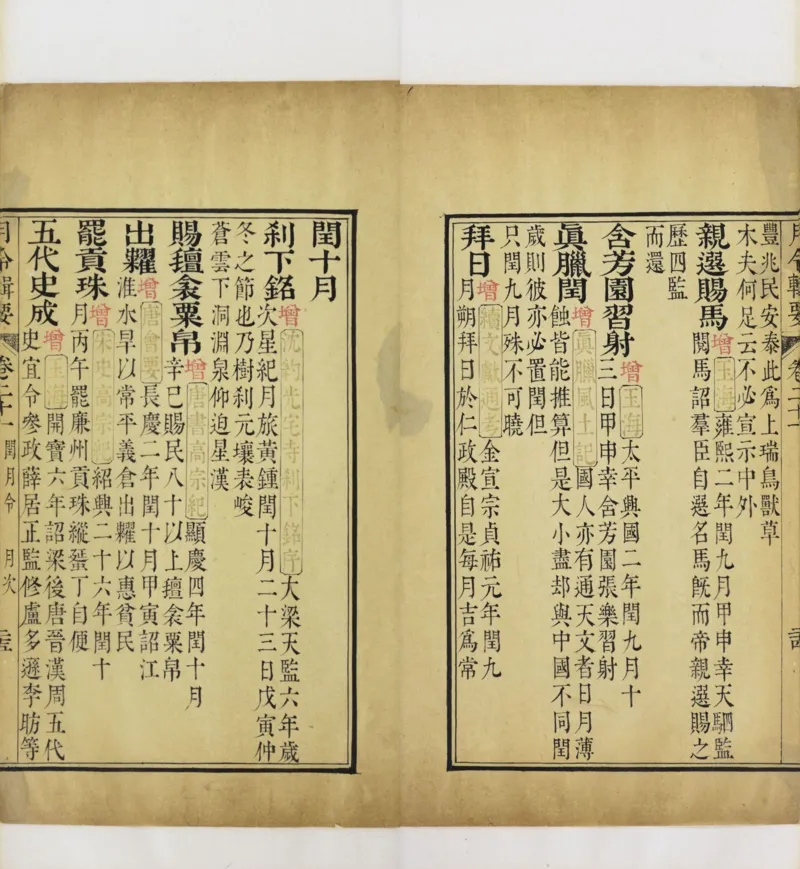 月令輯要 卷二十一
豐兆民安泰此為上瑞鳥獸草
木夫何足云不必宣示中外
親選賜馬 增 玉海 雍熙二年閏九月甲申幸天駟監
閱馬詔羣臣自選名馬旣而帝親選賜之
歷四監
而還
含芳園習射 增 玉海 太平興國二年閏九月十
三日甲申幸含芳園張樂習射
眞臘閏 增 眞臘風土記 國人亦有通天文者日月薄
蝕皆能推算但是大小盡却與中國不同閏
歲則彼亦必置閏但
只閏九月殊不可曉
拜日 增 續文獻通考 金宣宗貞祐元年閏九
月朔拜日於仁政殿自是每月吉為常
閏十月
刹下銘 增 沈約光宅寺刹下銘序 大梁天監六年歲
次星紀月旅黃鍾閏十月二十三日戊寅仲
冬之節也乃樹刹元壤表峻
蒼雲下洞淵泉仰迫星漢
賜氊衾粟帛 增 唐書高宗紀 顯慶四年閏十月
辛巳賜民八十以上氊衾粟帛
出糶 增 唐會要 長慶二年閏十月甲寅詔江
淮水旱以常平義倉出糶以惠貧民
罷貢珠 增 宋史高宗紀 紹興二十六年閏十
月丙午罷廉州貢珠縱蜑丁自便
五代史成 增 玉海 開寶六年詔梁後唐晉漢周五代
史宜令參政薛居正監修盧多遜李昉等
月令輯要 卷二十一 閏月令 月次